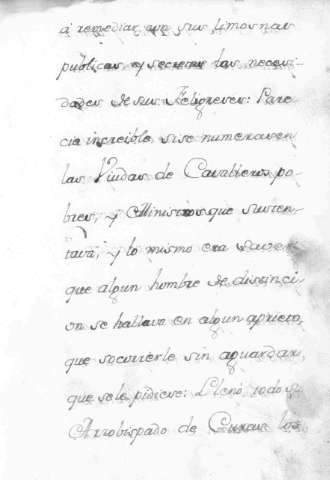 á remediar con sus limosnas
públicas y secretas las necesi-
dades de sus Feligreses: Pare
cia increible si se numerasen
las Viudas de Cavalleros po-
bres, y Ministros que susten-
tava; y lo mismo era saver
que algun hombre de distinci-
on se hallava en algun aprieto,
que socorrerle sin aguardar,
que se le pidiese: Llenó todo su
Arzobispado de las